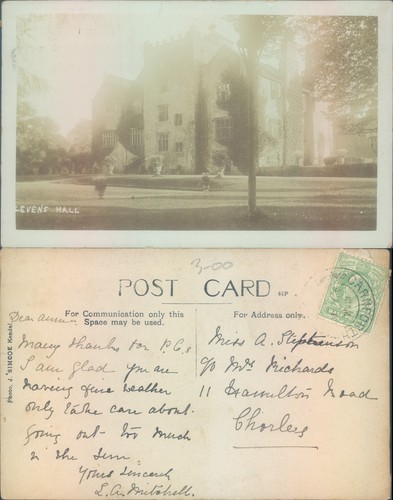 LEVENS HALL
3-00
POST CARD
For Communication only this
Space may be used.
For Address only.
Photo. J. SIMCOE Kendal.
Dear Annie
Many thanks for P.C.s
I am glad you are
having fine weather
only take care about
going out too much
in the sun.
Yours sincerely
L. A. Mitchell.
Miss A. Stephenson
c/o Mrs Richards
11 Hamilton Road
Chorley